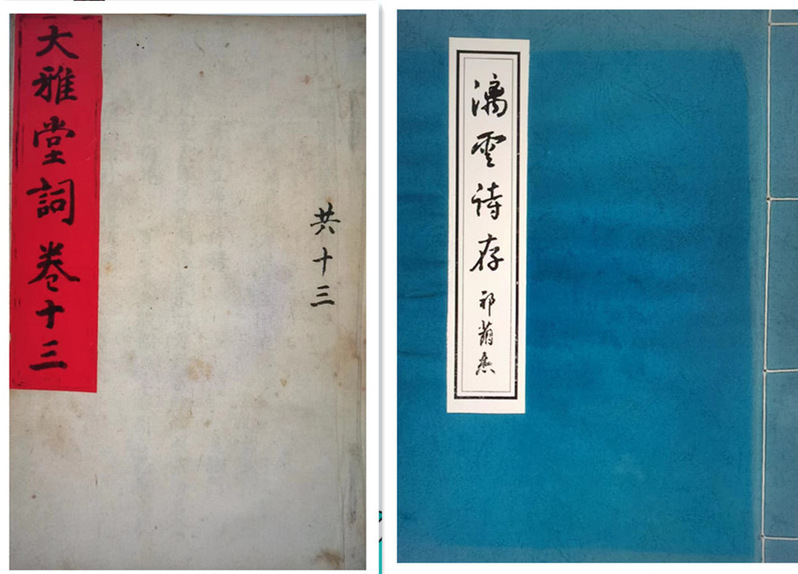 大雅堂詞卷十三
共十三
漓雲诗存
祁荫杰